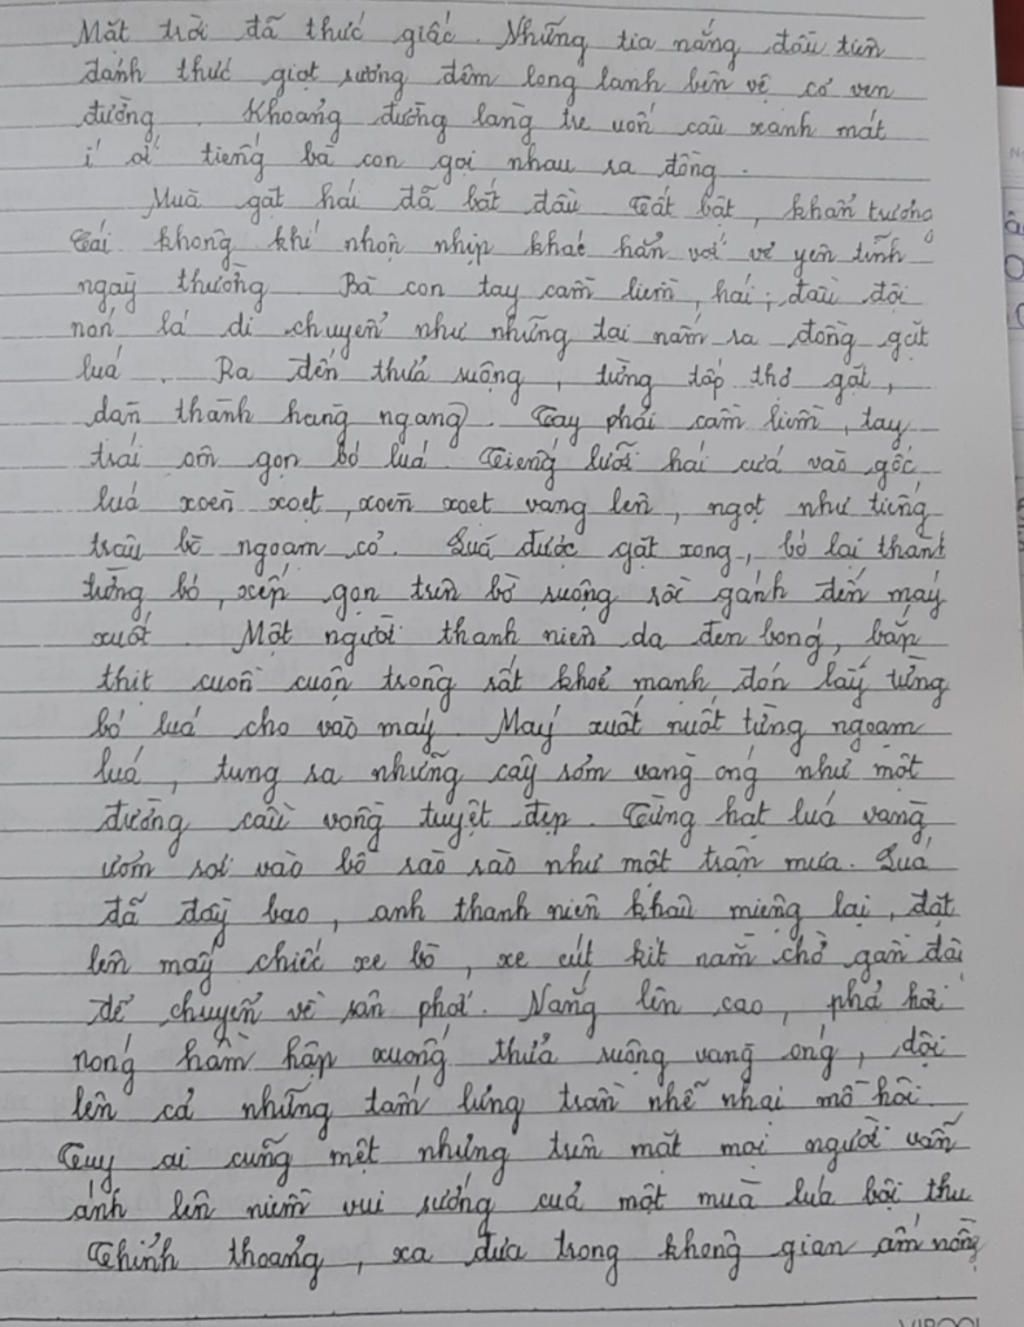 Mặt trời đã thức giấc. Những tia nắng đầu tiên
đánh thức giọt sương đêm long lanh bên vệ cỏ ven
đường. Khoảng đường làng tre uốn câu xanh mát
í ới tiếng bà con gọi nhau ra đồng.
Mùa gặt hái đã bắt đầu. Tất bật, khẩn trương
Cái không khí nhộn nhịp khác hẳn với vẻ yên tĩnh
ngày thường. Bà con tay cầm liềm, hái; đầu đội
nón lá di chuyển như những tai nấm ra đồng gặt
lúa. Ra đến thửa ruộng, từng tốp thợ gặt,
dàn thành hàng ngang. Tay phải cầm liềm, tay
trái ôm gọn bó lúa. Tiếng lưỡi hái cứa vào gốc
lúa xoèn xoẹt, xoèn xoẹt vang lên, ngọt như tiếng
trâu bò ngoạm cỏ. Lúa được gặt xong, bó lại thành
từng bó, xếp gọn trên bờ ruộng rồi gánh đến máy
xuốt. Một người thanh niên da đen bóng, bắp
thịt cuồn cuộn trông rất khoẻ mạnh đón lấy từng
bó lúa cho vào máy. Máy xuốt nuốt từng ngoạm
lúa, tung ra những cây rơm vàng óng như một
đường cầu vồng tuyệt đẹp. Từng hạt lúa vàng
ươm rơi vào bồ rào rào như một trận mưa. Lúa
đã đầy bao, anh thanh niên khâu miệng lại, đặt
lên mấy chiếc xe bò, xe cút kít nằm chờ gần đó
để chuyển về sân phơi. Nắng lên cao, phả hơi
nóng hầm hập xuống thửa ruộng vàng óng, dội
lên cả những tấm lưng trần nhễ nhại mồ hôi.
Tuy ai cũng mệt nhưng trên mặt mọi người vẫn
ánh lên niềm vui sướng của một mùa lúa bội thu
Thỉnh thoảng, xa đưa trong không gian ấm nồng
VIBOOK